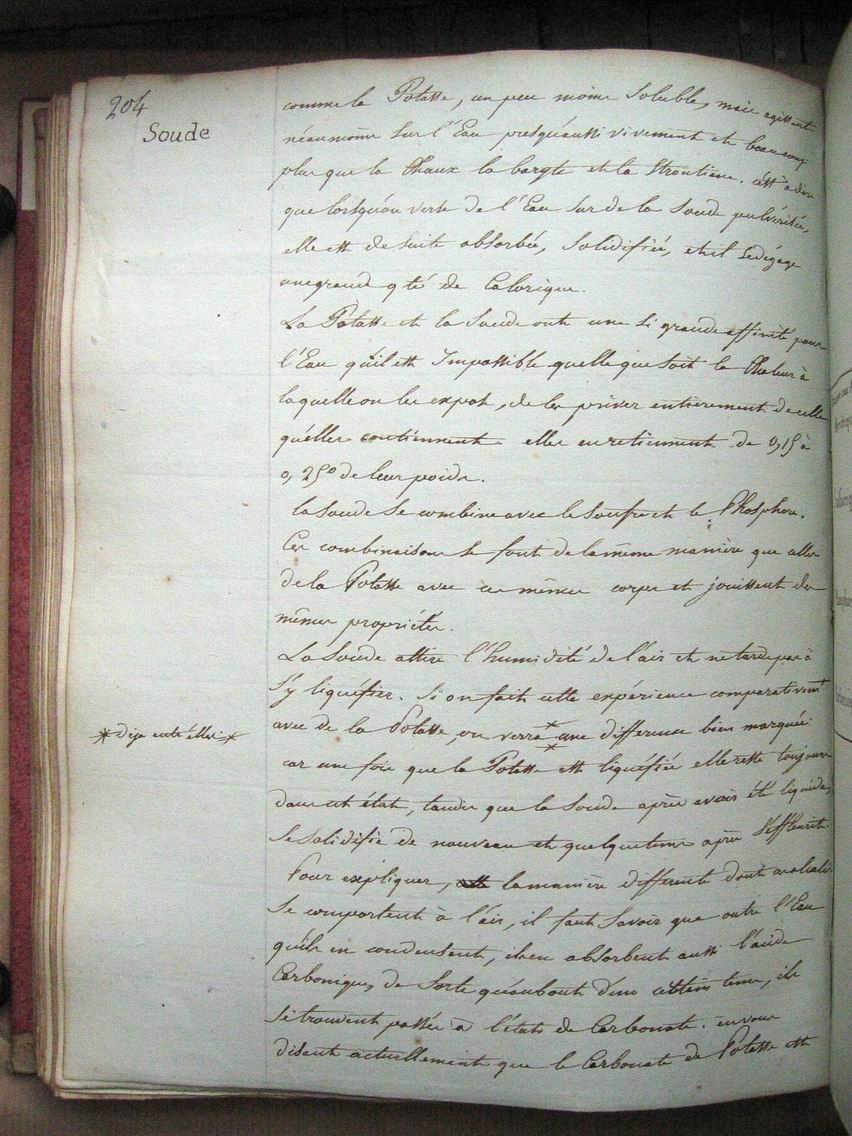 204
Soude
comme la Potasse, un peu moins soluble, mais agissant
néanmoins sur l'Eau presqu'aussi vivement et beaucoup
plus que la Chaux la baryte et la Strontiane. c'est à dire
que lorsqu'on verse de l'Eau sur de la Soude pulvérisée,
elle est de suite absorbée, Solidifiée, et il se dégage
une grande qté de Calorique.
La Potasse et la Soude ont une si grande affinité pour
l'Eau qu'il est Impossible quelle que soit la Chaleur à
laquelle on les expose, de les priver entièrement de celle
qu'elles contiennent elles en retiennent de 0,15 à
0,250 de leur poids.
la Soude se combine avec le Soufre et le Phosphore.
Ces combinaisons se font de la même manière que celles
de la Potasse avec ces mêmes corps et jouissent des
mêmes propriétés.
La Soude attire l'humidité de l'air et ne tarde pas à
s'y liquéfier. Si on fait cette expérience comparativemt
avec de la Potasse, on verra une différence bien marquée
*Déja entr'elles*
car une fois que la Potasse est liquéfiée elle reste toujours
dans cet état, tandis que la Soude après avoir été liquide,
se solidifie de nouveau et quelque tems après s'éffleurit.
Pour expliquer, la manière différente dont ces alcalis
se comportent à l'air, il faut savoir que outre l'Eau
qu'ils en condensent, ils en absorbent aussi l'acide
Carbonique, de sorte qu'au bout d'un certain tems, ils
se trouvent passés à l'état de Carbonate. en vous
disant actuellement que le Carbonate de Potasse est